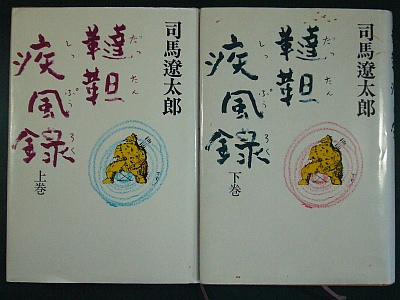 司馬遼太郎
韃靼
だったん
疾風録
しっぷうろく
上巻
司馬遼太郎
韃靼
だったん
疾風録
しっぷうろく
下巻